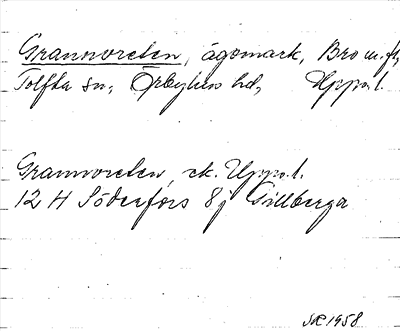 Grannvreten, ägomark, Bro m.fl,
Tolfta sn, Örbyhus hd, Upps.l.
Grannvreten, ek. Upps.l.
12 H Söderfors 8j Tillberga
1958